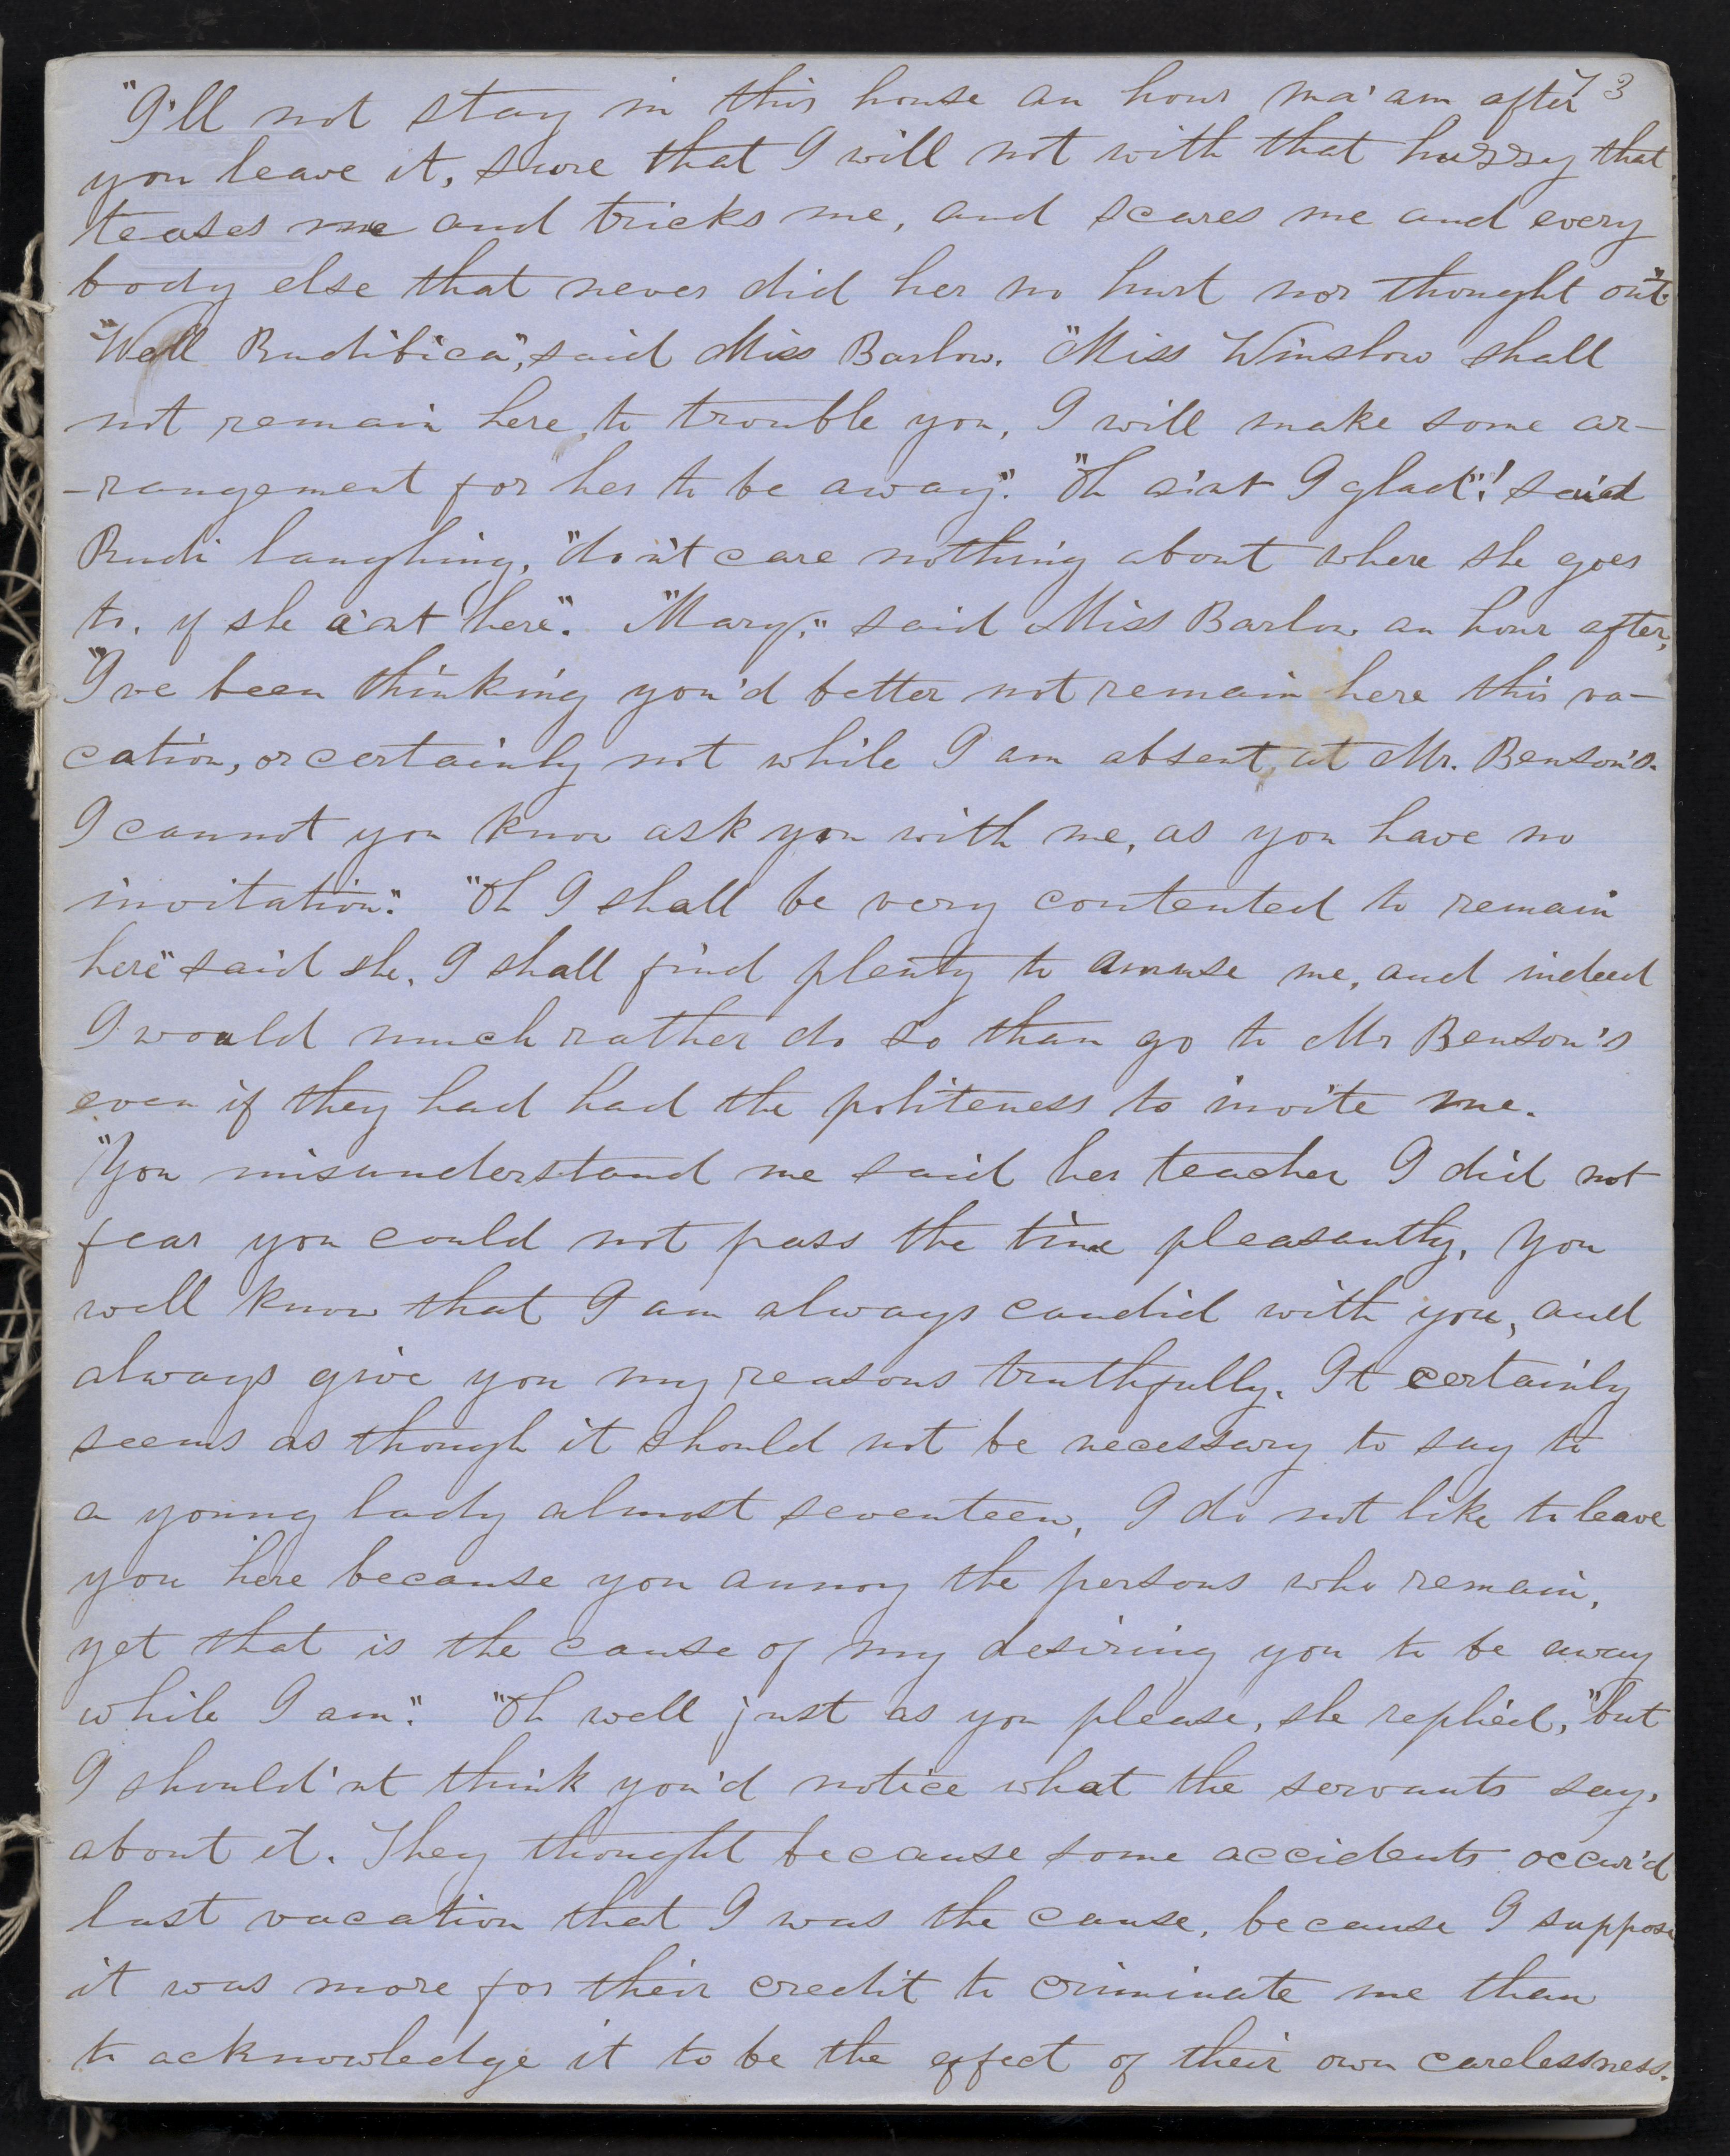 73
"I'll not stay in this house an hour ma'am after
you leave it, sure that I will not with that huzzey that
teases me and tricks me, and scares me and every
body else that never did her no hurt nor thought on't."
"Well Rudibica", said Miss Barlow. "Miss Winslow shall
not remain here, to trouble you, I will make some ar-
-rangement for her to be away". "Oh ai'nt I glad"! said
Rudi laughing, "do'nt care nothing about where she goes
to. if she ai'nt here". "Mary," said Miss Barlow. an hour after,
"I've been thinking you'd better not remain here this va-
cation, or certainly not while I am absent, at Mr. Benson's.
I cannot you know ask you with me, as you have no
invitation". "Oh I shall be very contented to remain
here" said she, I shall find plenty to amuse me, and indeed
I would much rather do so than go to Mr Benson's
even if they had had the politeness to invite me.
"You misunderstand me said her teacher I did not
fear you could not pass the time pleasantly, You
well know that I am always candid with you, and
always give you my reasons truthfully. It certainly
seems as though it should not be necessary to say to
a young lady almost seventeen, I do not like to leave
you here because you annoy the persons who remain,
yet that is the cause of my desiring you to be away
while I am". "Oh well just as you please, she replied, "but
I should'nt think you'd notice what the servants say,
about it. They thought because some accidents occur'd
last vacation that I was the cause, because I suppose
it was more for their credit to criminate me than
to acknowledge it to be the effect of their own carelessness.